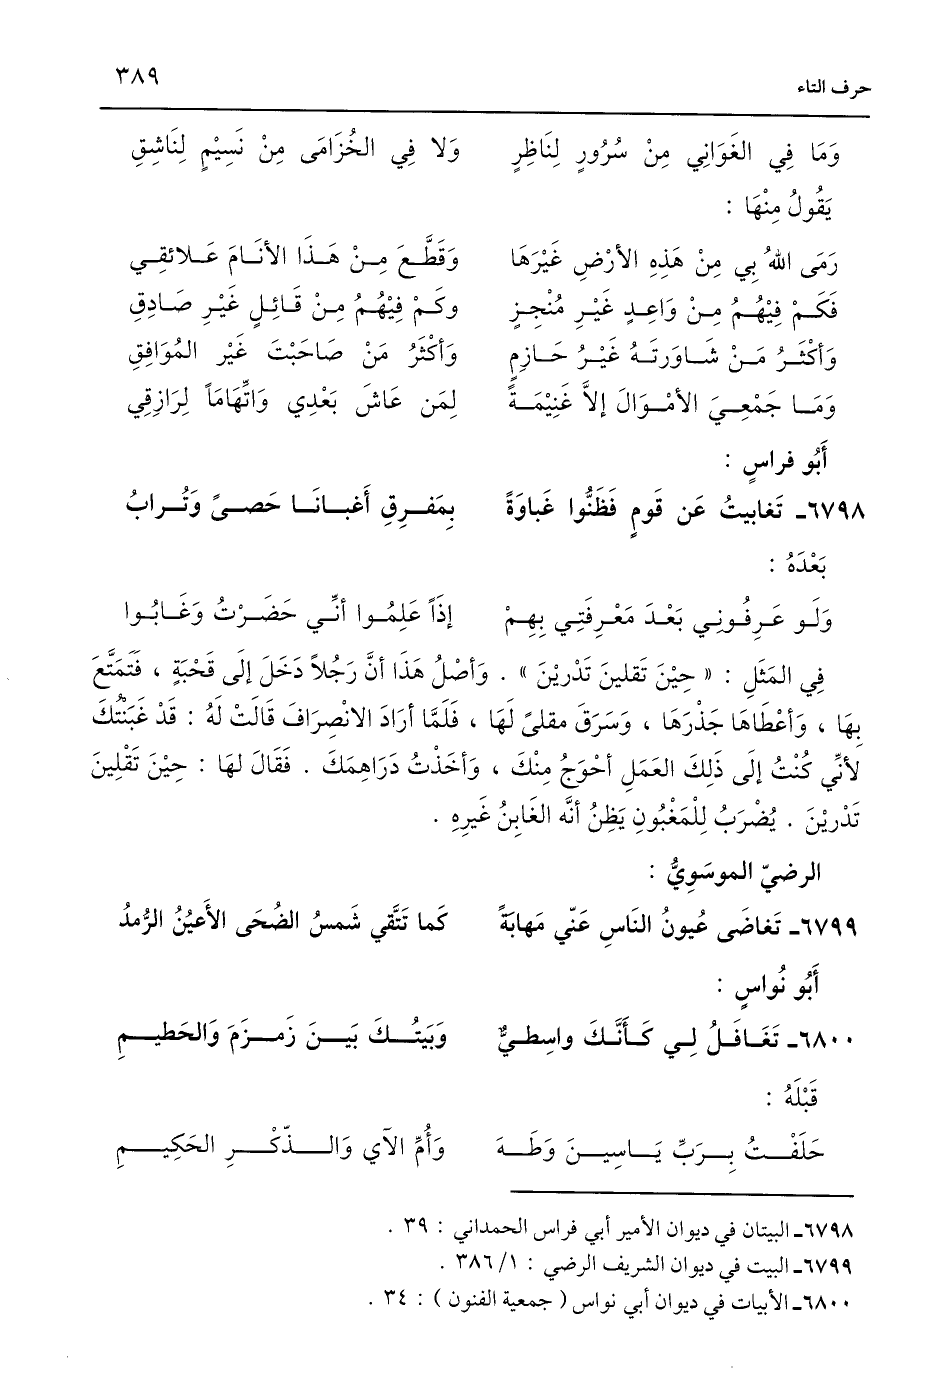 حرف التاء ٣٨٩
وَمَا فِي الغَوَانِي مِنْ سُرُورٍ لِنَاظِرٍ وَلا فِي الخُزَامَى مِنْ نَسِيْمٍ لِنَاشِقِ
يَقُولُ مِنْهَا :
رَمَى اللهُ بِي مِنْ هَذِهِ الأرْضِ غَيْرَهَا وَقَطَّعَ مِنْ هَذَا الأنَامَ عَلائقِي
فَكَمْ فِيْهُمُ مِنْ وَاعِدٍ غَيْرِ مُنْجِزٍ وكَمْ فِيْهُمُ مِنْ قَائِلٍ غَيْرِ صَادِقِ
وَأكْثَرُ مَنْ شَاوَرتَهُ غَيْرُ حَازِمٍ وَأكْثَرُ مَنْ صَاحَبْتَ غَيْر المُوَافِقِ
وَمَا جَمْعِيَ الأمْوَالَ إلاَّ غَنِيْمَةً لِمَن عَاشَ بَعْدِي وَاتِّهَاماً لِرَازِقِي
أَبُو فراسٍ :
٦٧٩٨ـ تَغابيتُ عَن قَومٍ فَظَنُّوا غَباوَةً بِمَفرِقِ أَغبانَا حَصىً وَتُرابُ
بَعْدَهُ :
وَلَو عَرِفُونِي بَعْدَ مَعْرِفَتِي بِهِمْ إذَاً عَلِمُوا أنِّي حَضَرْتُ وَغَابُوا
فِي المَثَلِ : « حِيْنَ تَقلينَ تَدْرِيْنَ » . وَأصْلُ هَذَا أنَّ رَجُلاً دَخَلَ إلَى قَحْبَةٍ ، فَتَمَتَّعَ
بِهَا ، وَأعْطَاهَا جَذْرَهَا ، وَسَرَقَ مقلىً لَهَا ، فَلَمَّا أرَادَ الانْصِرَافَ قَالَتْ لَهُ : قَدْ غَبَنْتُكَ
لأنِّي كُنْتُ إلَى ذَلِكَ العَمَلِ أحْوَجُ مِنْكَ ، وَأخَذْتُ دَرَاهِمَكَ . فَقَالَ لهَا : حِيْنَ تَقْلِينَ
تَدْرِيْنَ . يُضْرَبُ لِلْمَغْبُونِ يَظِنُ أنَّه الغَابِنُ غَيرِهِ .
الرضيّ الموسَوِيُّ :
٦٧٩٩ـ تَغاضَى عُيونُ النَاسِ عَنّي مَهابَةً كَما تَتَّقي شَمسُ الضُحَى الأَعيُنُ الرُّمدُ
أَبُو نُواسٍ :
٦٨٠٠ـ تَغَافَلُ لِي كَأَنَّكَ واسِطيٌّ وَبَيتُكَ بَينَ زَمزَمَ وَالحَطيمِ
قَبْلَهُ :
حَلَفْتُ بِرَبِّ يَاسِينَ وَطَهَ وَأُمِّ الآيِ وَالذّكْرِ الحَكِيمِ
٦٧٩٨ـ البيتان في ديوان الأمير أبي فراس الحمداني : ٣٩ .
٦٧٩٩ـ البيت في ديوان الشريف الرضي : ١/ ٣٨٦ .
٦٨٠٠ـ الأبيات في ديوان أبي نواس ( جمعية الفنون ) : ٣٤ .